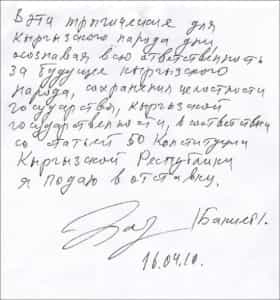 В эти трагические для
Кыргызского народа дни
осознавая всю ответственность
за будущее кыргызского
народа, сохранения целостности
государства, кыргызской
государственности, в соответствии
со статьей 50 Конституции
Кыргызской Республики
я подаю в отставку.
/Бакиев/.
16.04.10.